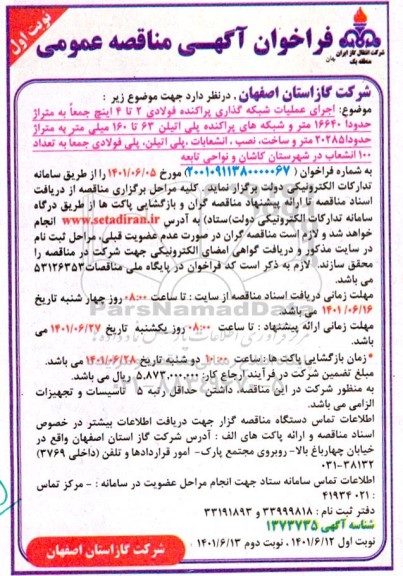 نوبت اول
فراخوان آگهی مناقصه عمومی
شرکت انتقال گاز ایران
منطقه یک
شرکت گاز استان اصفهان ، درنظر دارد جهت موضوع زیر :
موضوع: اجرای عملیات شبکه گذاری پراکنده فولادی ۲ تا ۴ اینچ جمعاً به متراژ
حدودا ۱۶۶۴۰ متر و شبکه های پراکنده پلی اتیلن ۶۳ تا ۱۶۰ میلی متر به متراژ
حدودا ۲۰۲۸۵ متر و ساخت، نصب ، انشعابات ،پلی اتیلن، پلی فولادی جمعا به تعداد
۱۰۰ انشعاب در شهرستان کاشان و نواحی تابعه
به شماره فراخوان ( ۲۰۰۱۰۹۱۱۳۸۰۰۰۰۶۷) مورخ ۱۴۰۱/۰۶/۰۵ را از طریق سامانه
تدارکات الکترونیکی دولت برگزار نماید . کلیه مراحل برگزاری مناقصه از دریافت
اسناد مناقصه تا ارائه پیشنهاد مناقصه گران و بازگشایی پاکت ها از طریق درگاه
سامانه تدارکات الکترونیکی دولت(ستاد) به آدرس www.setadiran.ir انجام
خواهد شد و لازم است مناقصه گران در صورت عدم عضویت قبلی، مراحل ثبت نام
در سایت مذکور و دریافت گواهی امضای الکترونیکی جهت شرکت در مناقصه را
محقق سازند. لازم به ذکر است کد فراخوان در پایگاه ملی مناقصات ۵۳۱۲۶۳۵۳
می باشد.
مهلت زمانی دریافت اسناد مناقصه از سایت : تا ساعت ۰۸:۰۰ روز چهار شنبه تاریخ
۱۴۰۱/۰۶/۱۶ می باشد.
مهلت زمانی ارائه پیشنهاد : تا ساعت ۰۸:۰۰ روز یکشنبه تاریخ ۱۴۰۱/۰۶/۲۷ می
باشد.
* زمان بازگشایی پاکت ها : ساعت ۱۰:۰۰ دو شنبه تاریخ ۱۴۰۱/۰۶/۲۸ می باشد.
مبلغ تضمین شرکت در فرآیند ارجاع کار: ۵.۸۷۳.۰۰۰.۰۰۰ ریال می باشد.
به منظور شرکت در این مناقصه، داشتن حداقل رتبه ۵ تاسیسات و تجهیزات
الزامی می باشد.
اطلاعات تماس دستگاه مناقصه گزار جهت دریافت اطلاعات بیشتر در خصوص
اسناد مناقصه و ارائه پاکت های الف : آدرس شرکت گاز استان اصفهان واقع در
خیابان چهارباغ بالا- روبروی مجتمع پارک- امور قراردادها و تلفن (داخلی ۳۷۶۹)
۰۳۱-۳۸۱۳۲
اطلاعات تماس سامانه ستاد جهت انجام مراحل عضویت در سامانه : - مرکز تماس
: ۰۲۱- ۴۱۹۳۴
دفتر ثبت نام : ۳۳۹۹۹۸۱۸ و ۳۳۱۹۱۸۹۳
شناسه آگهی ۱۳۷۳۷۳۵
نوبت اول ۱۴۰۱/۶/۱۲ ، نوبت دوم ۱۴۰۱/۶/۱۳
شرکت گاز استان اصفهان
ParsNamadData